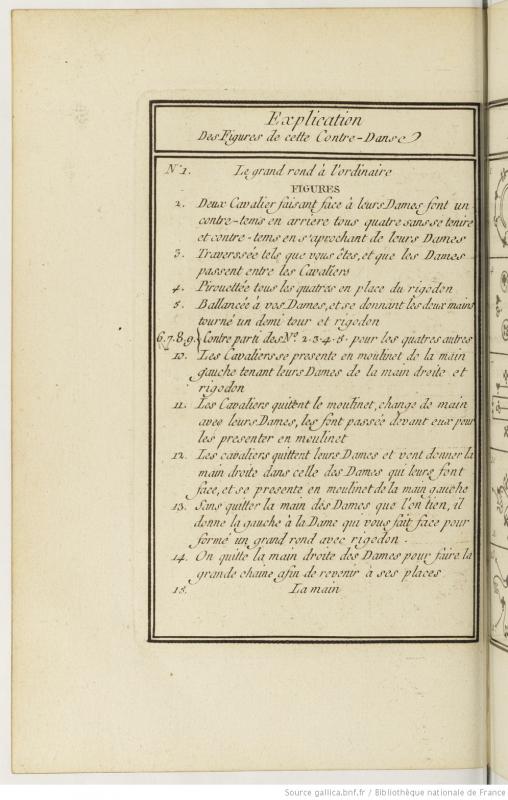 Explication
Des Figures de cette Contre-Danse
N.º 1. Le grand rond à l'ordinaire
FIGURES
2. Deux Cavalier faisant face à leurs Dames font un
contre-tems en arriere tous quatre sans se tenire
et contre-tems en s'aprochant de leurs Dames
3. Traverssée tels que vous êtes, et que les Dames
passent entre les Cavaliers
4. Pirouettée tous les quatres en place du rigodon
5. Ballancée à vos Dames, et se donnant les deux mains
tourné un demi tour et rigodon
6.7.8.9. Contre parti des Nº. 2.3.4.5. pour les quatres autres
10. Les Cavaliers se presente en moulinet de la main
gauche tenant leurs Dames de la main droite et
rigodon
11. Les Cavaliers quittent le moulinet, change de main
avec leurs Dames, les font passée devant eux pour
les presenter en moulinet
12. Les cavaliers quittent leurs Dames et vont donner la
main droite dans celle des Dames qui leurs font
face, et se presente en moulinet de la main gauche
13. Sans quitter la main des Dames que l'on tien, il
donne la gauche à la Dame qui vous fait face pour
formé un grand rond avec rigodon.
14. On quitte la main droite des Dames pour faire la
grande chaine afin de revenir à ses places
15. La main
Source gallica.bnf.fr / Bibliothèque nationale de France